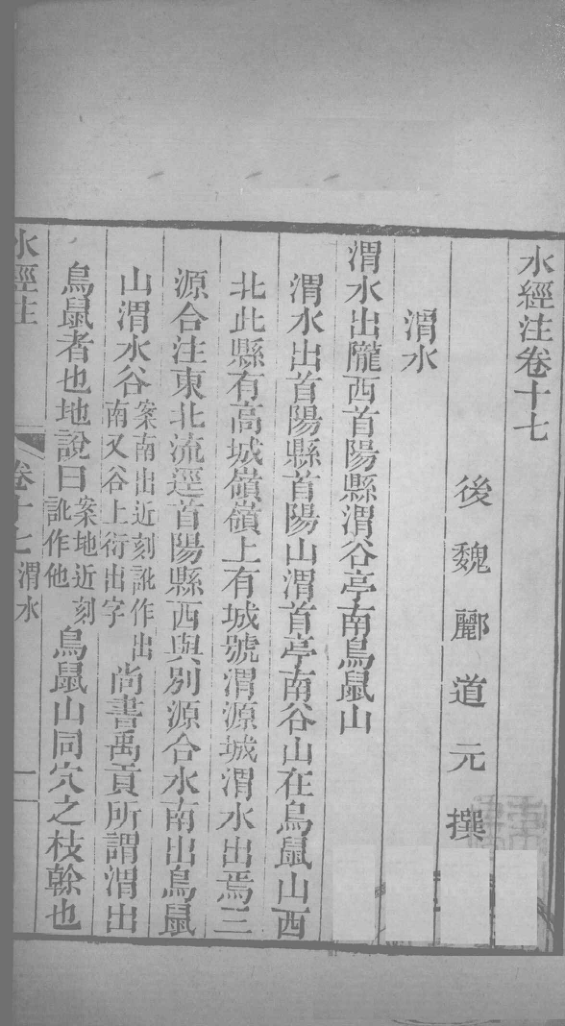 水經注卷十七
後魏酈道元撰
渭水
渭水出隴西首陽縣渭谷亭南鳥鼠山
渭水出首陽縣首陽山渭首亭南谷山在鳥鼠山西
北此縣有高城嶺嶺上有城號渭源城渭水出焉三
源合注東北流逕首陽縣西與別源合水南出鳥鼠
山渭水谷案南出近刻訛作出南又谷上衍出字尚書禹貢所謂渭出
鳥鼠者也地說曰案地近刻訛作他鳥鼠山同穴之枝榦也
水經注 卷十七 渭水 一